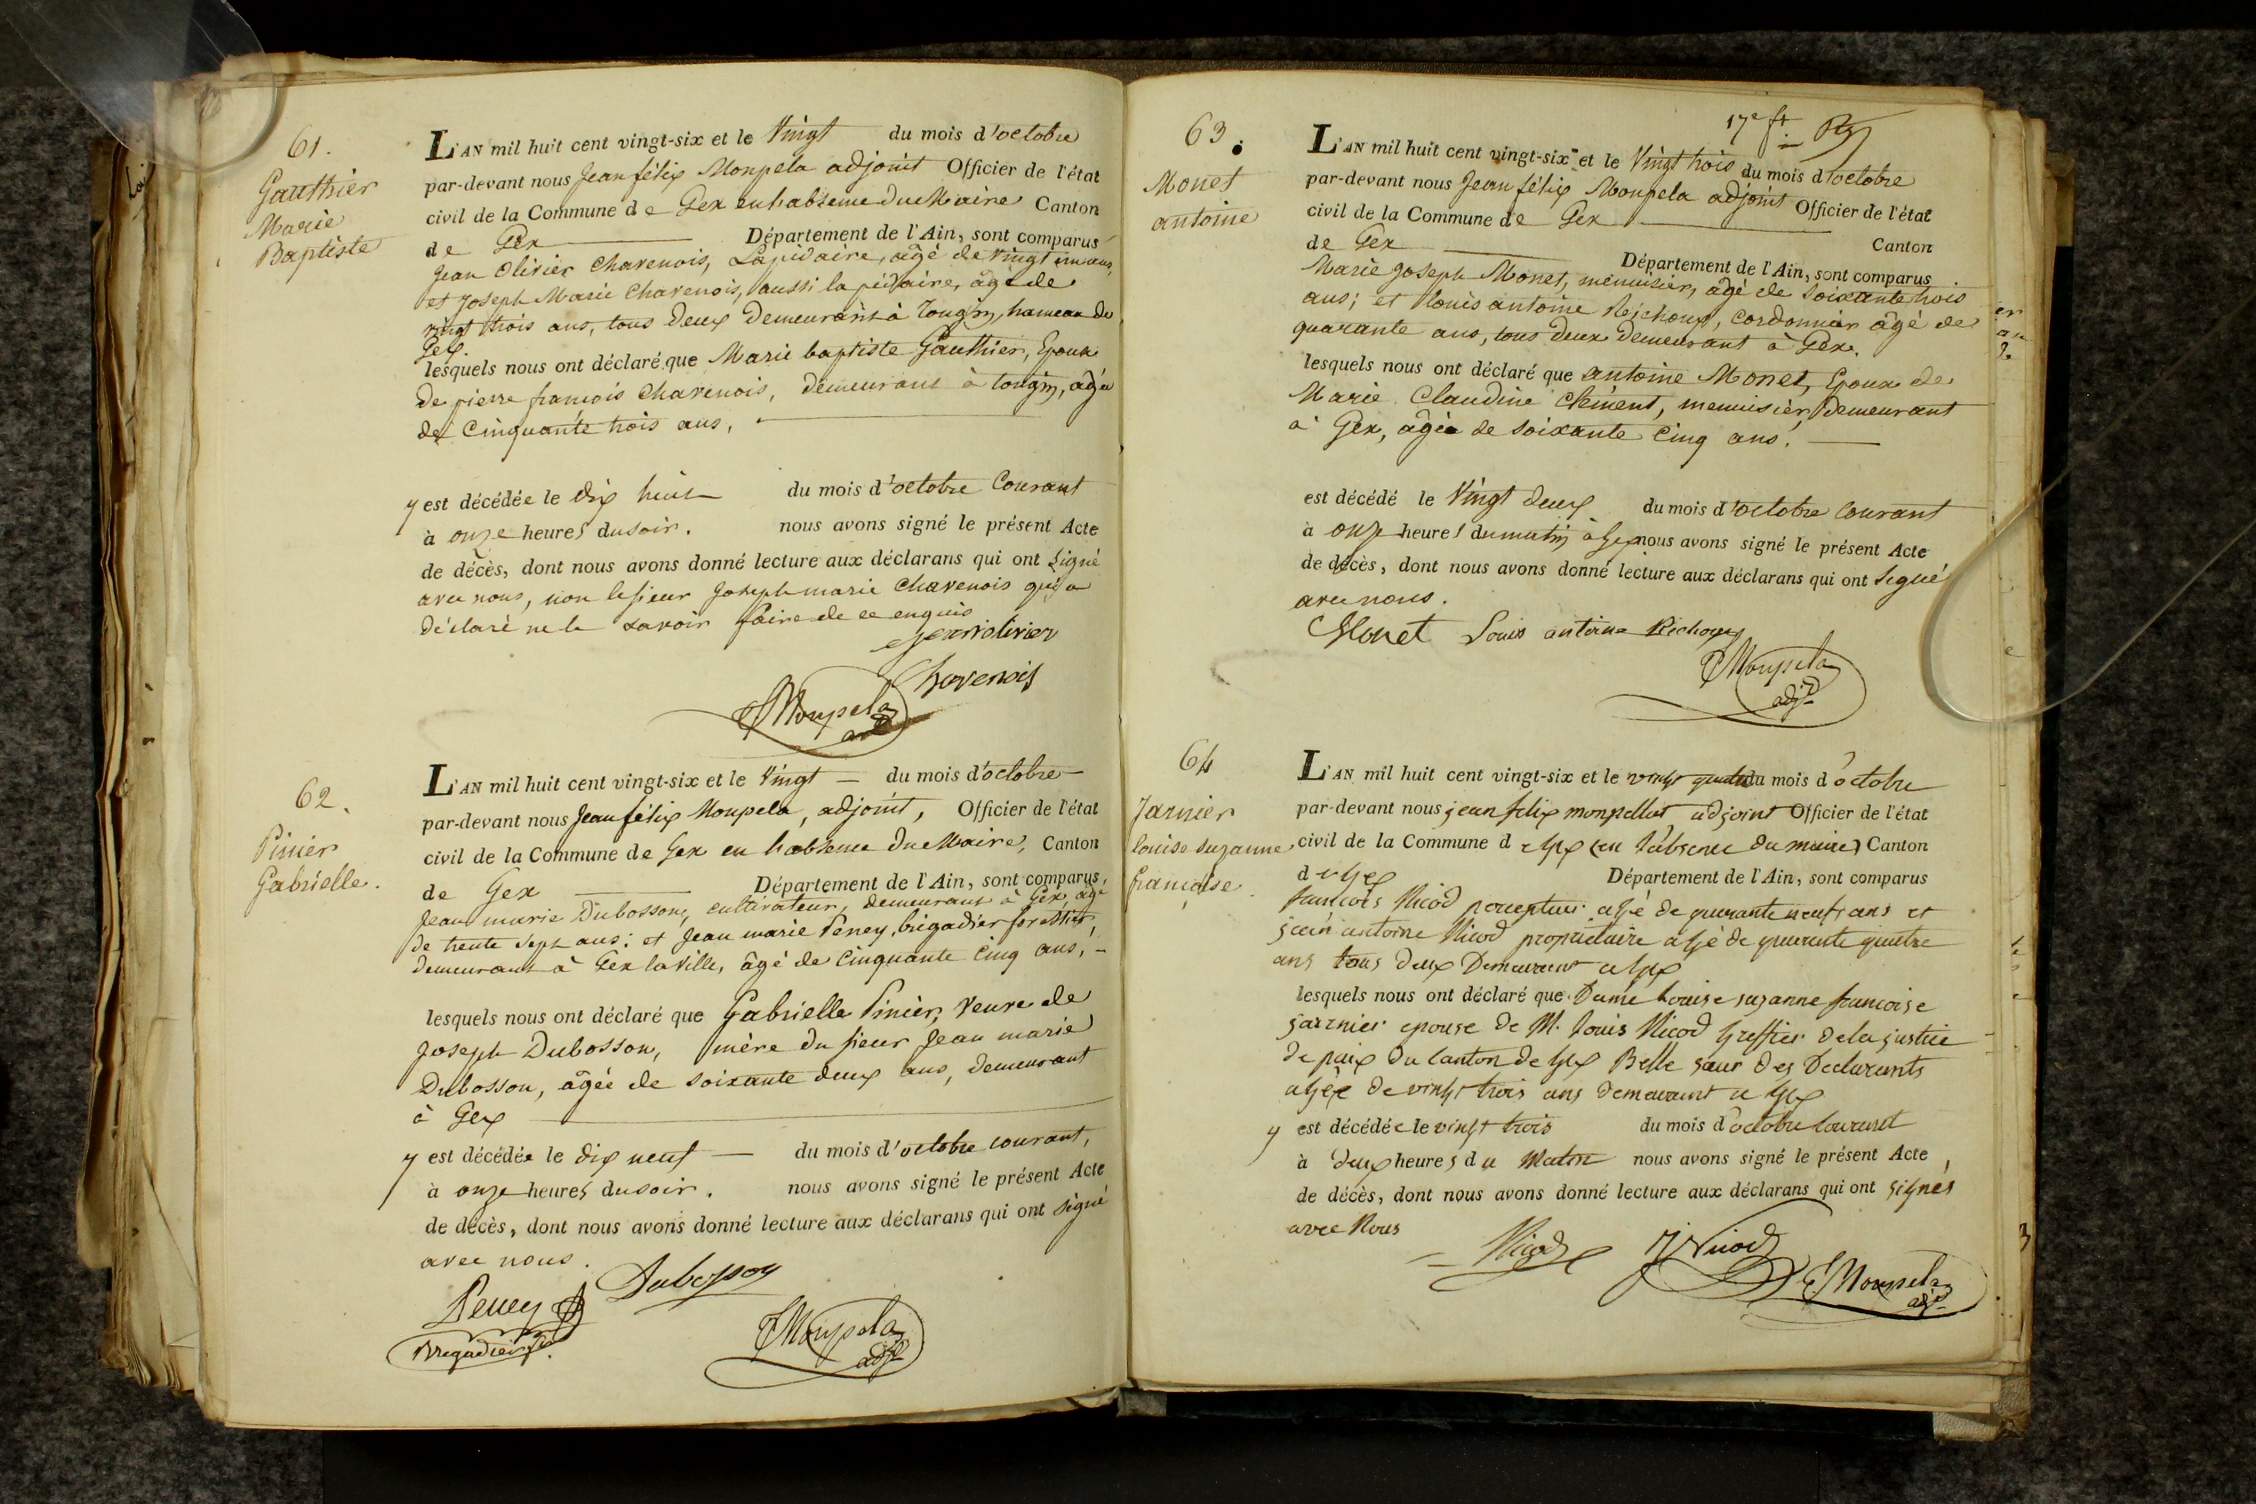 61.
Gauthier
Marie
Baptiste
L'AN mil huit cent vingt-six et le Vingt du mois d'octobre
par-devant nous Jean félix Monpela adjoint Officier de l'état
civil de la Commune de Gex en l'absence du Maire Canton
de Gex Département de l'Ain, sont comparus
Jean Olivier Chavenois, Lapidaire, âgé de vingt un ans,
et Joseph Marie Chavenois, aussi lapidaire, âgé de
vingt trois ans, tous deux demeurant à Tougin, hameau de
Gex.
lesquels nous ont déclaré que Marie baptiste Gauthier, Epouse
de pierre françois Chavenois, demeurant à tougin, agée
de Cinquante trois ans,
y est décédée le dix huit du mois d'octobre Courant
à onze heures du soir. nous avons signé le présent Acte
de décès, dont nous avons donné lecture aux déclarans qui ont signé
avec nous, non le sieur Joseph marie Chavenois qui a
déclaré ne le savoir faire de ce enquis
Jean olivier
Chavenois
Monpela
adjt
62.
Pinier
Gabrielle.
L'AN mil huit cent vingt-six et le Vingt du mois d'octobre
par-devant nous Jean félix Monpela, adjoint, Officier de l'état
civil de la Commune de Gex en l'absence du Maire, Canton
de Gex Département de l'Ain, sont comparus,
Jean marie Dubosson, cultivateur, demeurant à Gex, âgé
de trente sept ans; et Jean marie Peney, brigadier forestier,
demeurant à Gex la Ville, âgé de Cinquante Cinq ans,
lesquels nous ont déclaré que Gabrielle Pinier, Veuve de
Joseph Dubosson, mère du sieur Jean marie
Dubosson, âgée de soixante deux ans, demeurant
à Gex
y est décédée le dix neuf du mois d'octobre courant,
à onze heures du soir. nous avons signé le présent Acte
de décès, dont nous avons donné lecture aux déclarans qui ont signé
avec nous.
Peney Dubosson
Brigadier
Monpela
adjt
17e ft
63.
Monet
antoine
L'AN mil huit cent vingt-six et le Vingt trois du mois d'octobre
par-devant nous Jean félix Monpela adjoint Officier de l'état
civil de la Commune de Gex Canton
de Gex Département de l'Ain, sont comparus
Marie Joseph Monet, menuisier, âgé de soixante trois
ans; et Louis antoine Réchoux, Cordonnier âgé de
quarante ans, tous deux demeurant à Gex.
lesquels nous ont déclaré que antoine Monet, Epoux de
Marie Claudine Clément, menuisier, demeurant
à Gex, âgé de soixante cinq ans.
est décédé le Vingt deux du mois d'octobre courant
à onze heures du matin à Gex nous avons signé le présent Acte
de décès, dont nous avons donné lecture aux déclarans qui ont signé
avec nous.
Monet Louis antoine
Monpela
adjt
64
Jarnier
louise suzanne
françoise
L'AN mil huit cent vingt-six et le vingt quatre du mois d'octobre
par-devant nous jean felix monpellat adjoint Officier de l'état
civil de la Commune de Gex (en l'absence du maire) Canton
de Gex Département de l'Ain, sont comparus
françois Nicod percepteur agé de quarante neuf ans et
jean antoine Nicod proprietaire agé de quarante quatre
ans tous deux Demeurant a Gex
lesquels nous ont déclaré que Dame Louise suzanne francoise
jarnier epouse de M. louis Nicod Greffier de la justice
de paix du Canton de Gex Belle sœur des Declarants
agée de vingt trois ans demeurant a Gex
y est décédée le vingt trois du mois d'octobre courant
à deux heures du Matin nous avons signé le présent Acte,
de décès, dont nous avons donné lecture aux déclarans qui ont signés
avec Nous
Nicod Nicod
Monpela
adjt